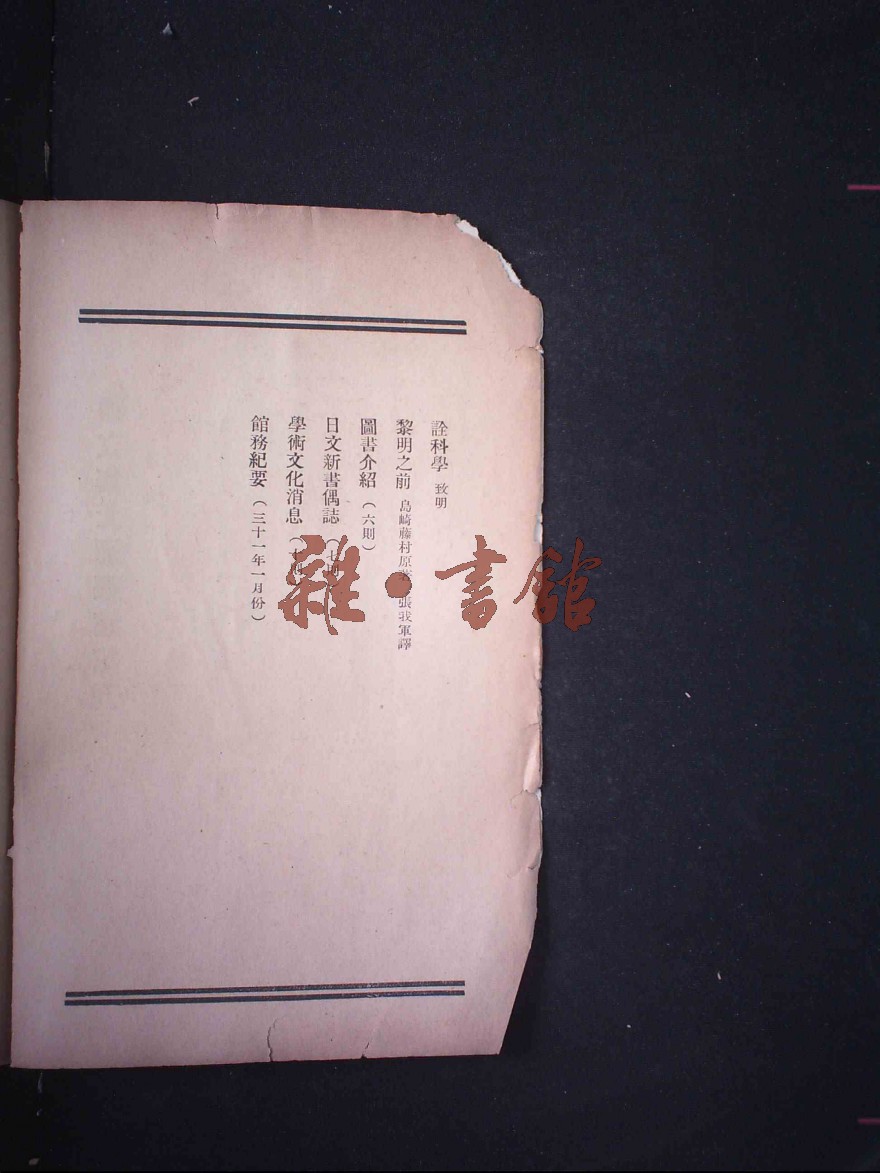 詮科學 致明
黎明之前 島崎藤村原著 張我軍譯
圖書介紹(六則)
日文新書偶誌(七則
學術文化消息(
館務紀要(三十一年一月份)
雜・書館